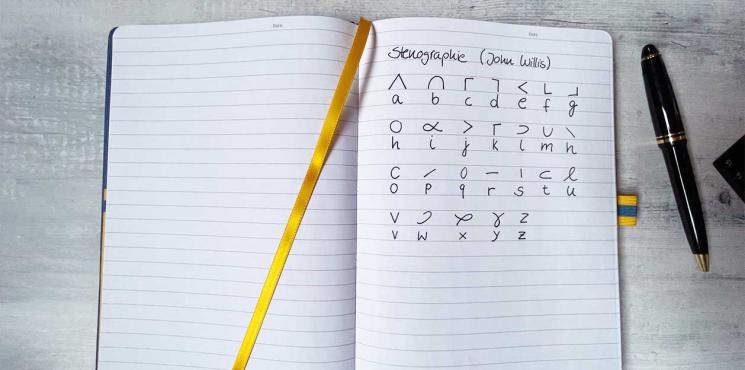 Date
Date
Stenographie (John Willis)
a b c d e f g
h i j k l m n
o p q r s t u
v w x y z